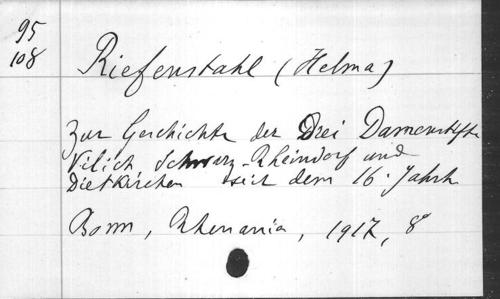 95
108
Riefenstahl (Helma)
Zur Geschichte der Drei Damenstifte
Vilich Schwarz-Rheindorf und
Dietkirchen seit dem 16. Jahrh
Bonn, Rhenania, 1917, 8°